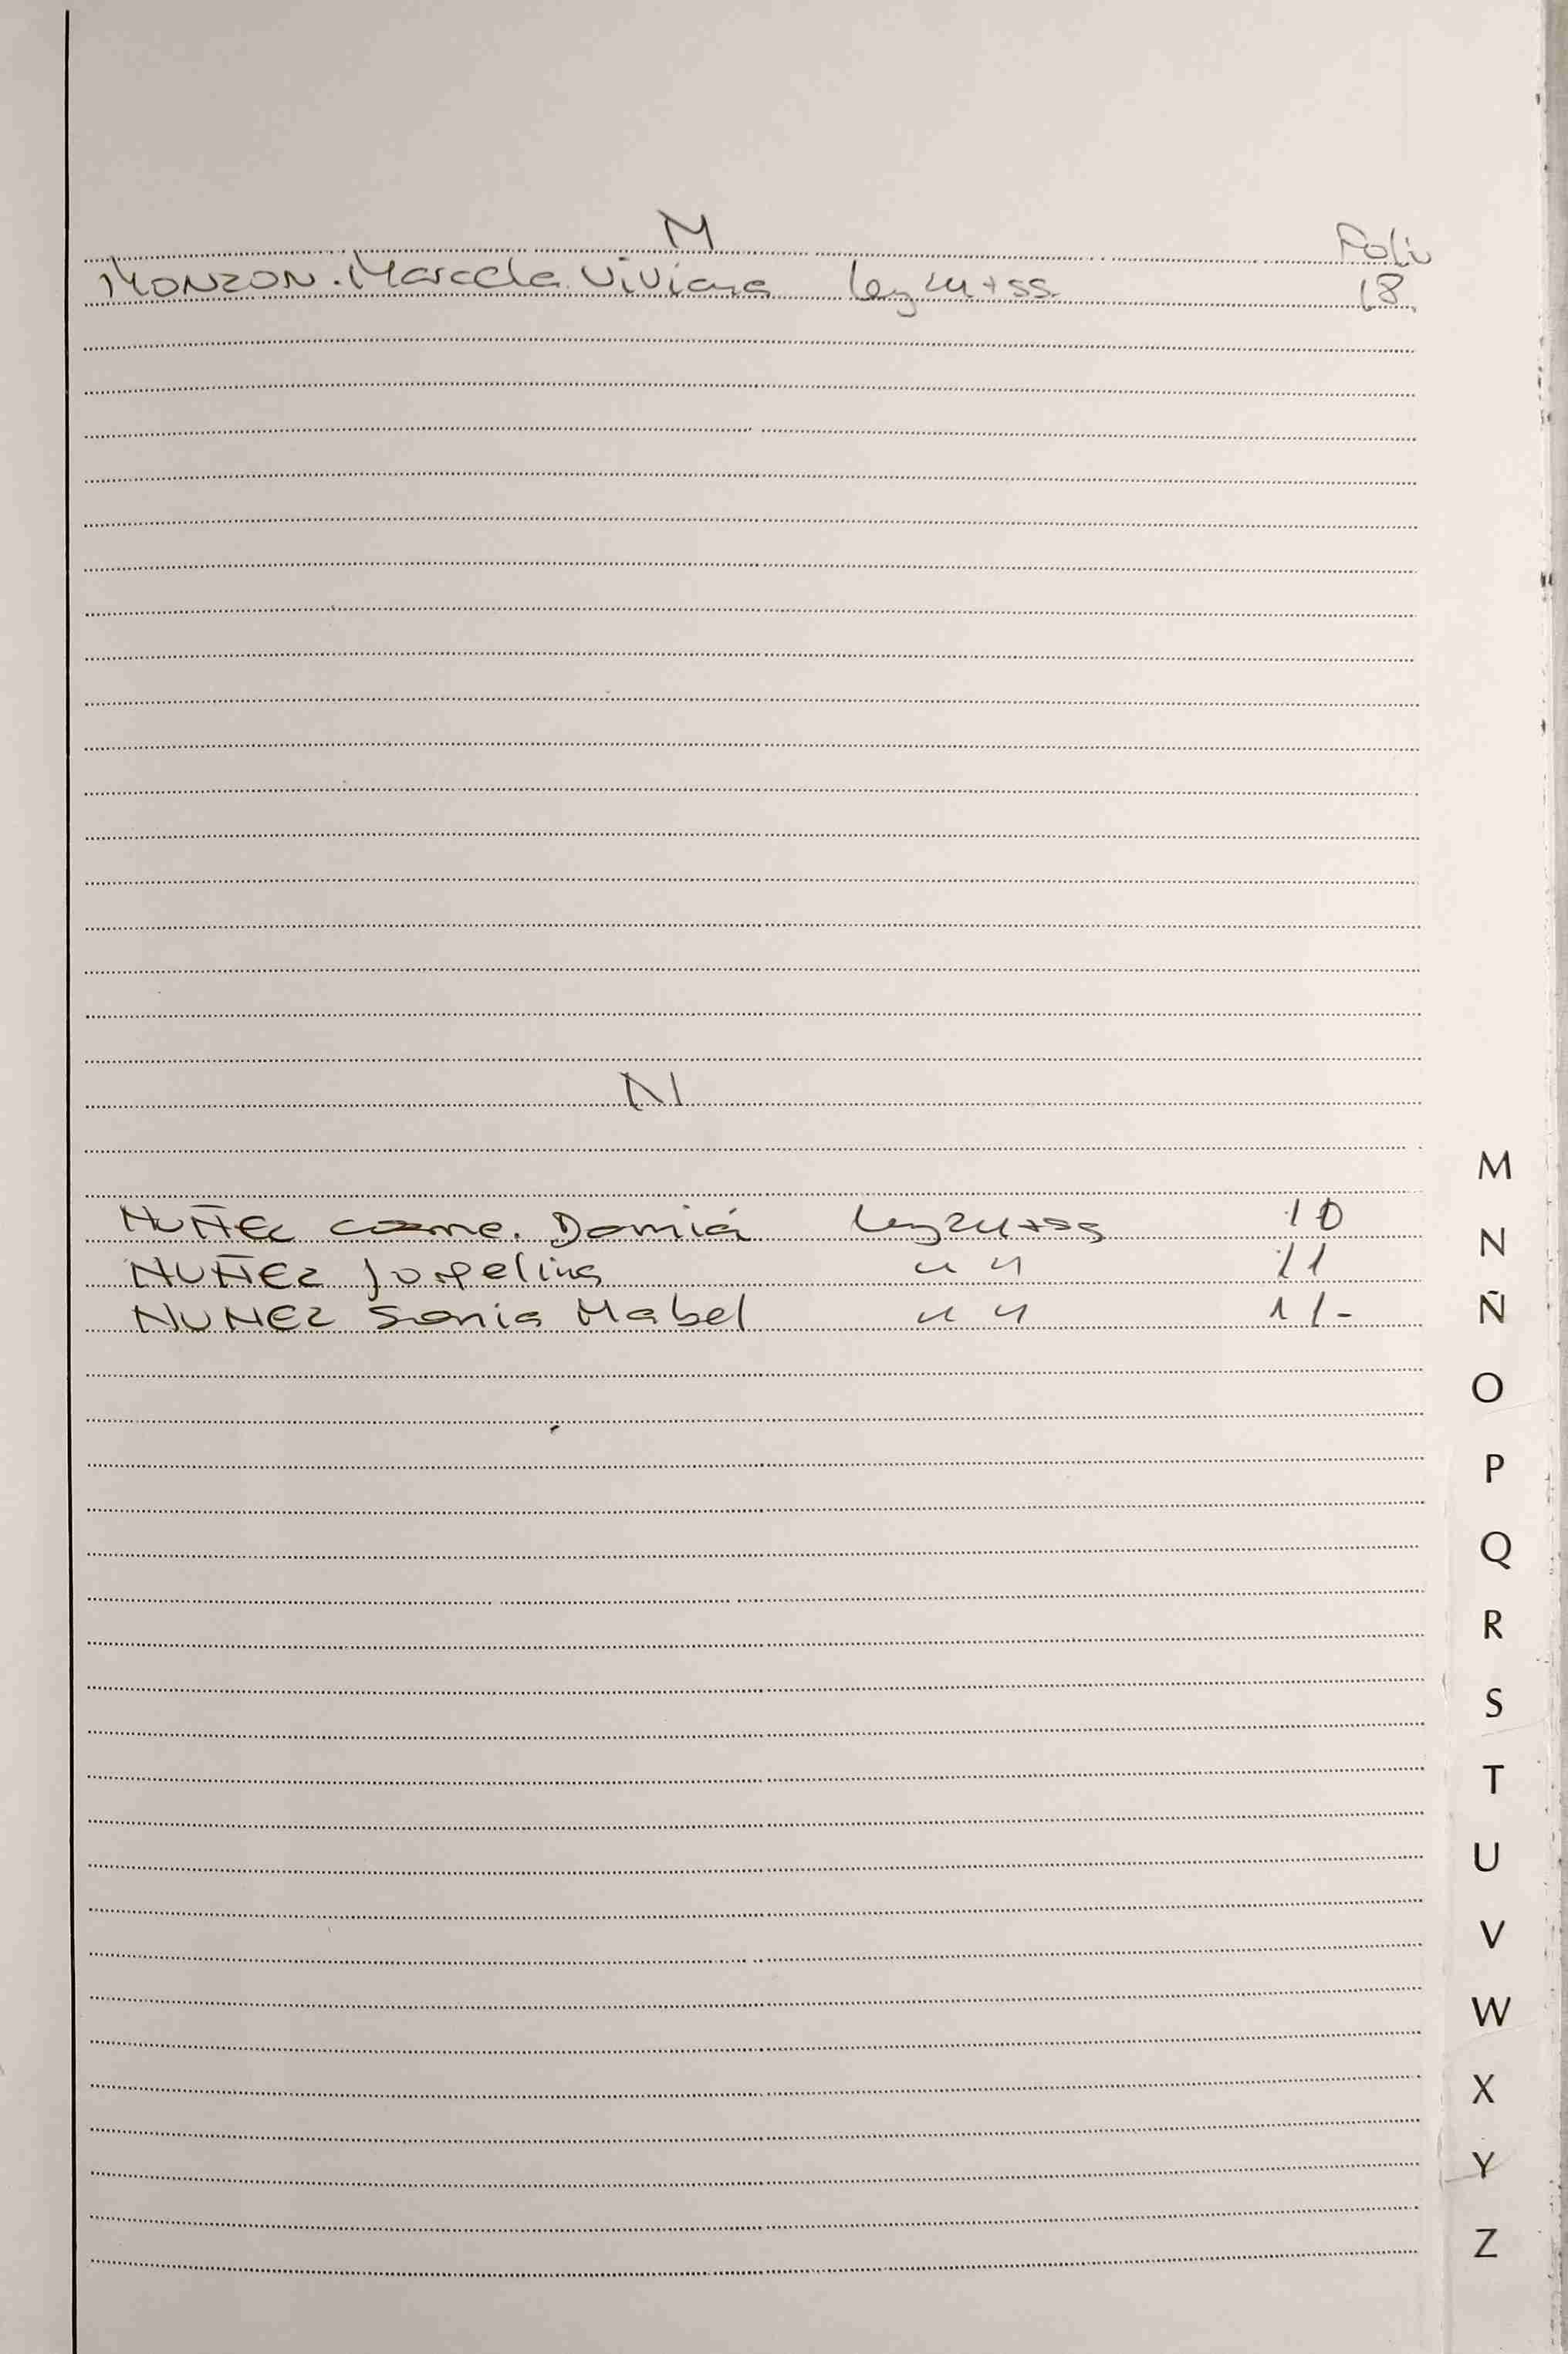 M Folio
MONZON. Marcela Viviana Ley 24455 18.
N
NUÑEZ Cosme. Damiá Ley 24455 10
NUÑEZ Jorgelina " " 11
NUÑEZ Sonia Mabel " " 11-
M
N
Ñ
O
P
Q
R
S
T
U
V
W
X
Y
Z